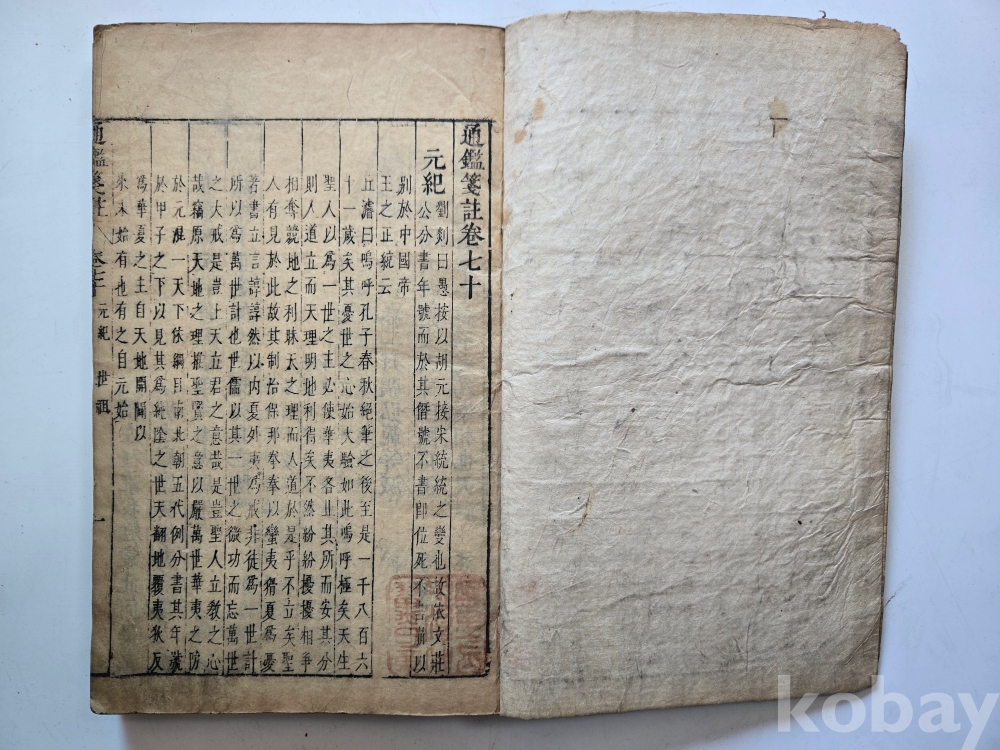 通鑑箋註卷七十
元紀
劉剡曰愚按以胡元接宋統統之變也故依文莊
公分書年號而於其僭號不書即位死不言崩以
別於中國帝
王之正統云
丘濬曰嗚呼孔子春秋絕筆之後至是一千八百六
十一歲矣其憂世之心始大驗如此嗚呼極矣天生
聖人以爲一世之主必使華夷各止其所而安其分
則人道立而天理明地利得矣不然紛紛擾擾相爭
相奪競地之利昧天之理而人道於是乎不立矣聖
人有見於此故其制治保邦拳拳以蠻夷猾夏爲憂
著書立言諄諄然以内夏外夷爲戒非徒爲一世計
所以爲萬世計也世儒以其一世之微功而忘萬世
之大戒是豈上天立君之意哉是豈聖人立教之心
哉竊原天地之理推聖賢之意以嚴萬世華夷之防
於元混一天下依綱目南北朝五代例分書其年號
於甲子之下以見其爲純陰之世天翻地覆夷狄反
爲華夏之主自天地開闢以
來未始有也有之自元始
通鑑箋註 卷七十 元紀 世祖 一
kobay